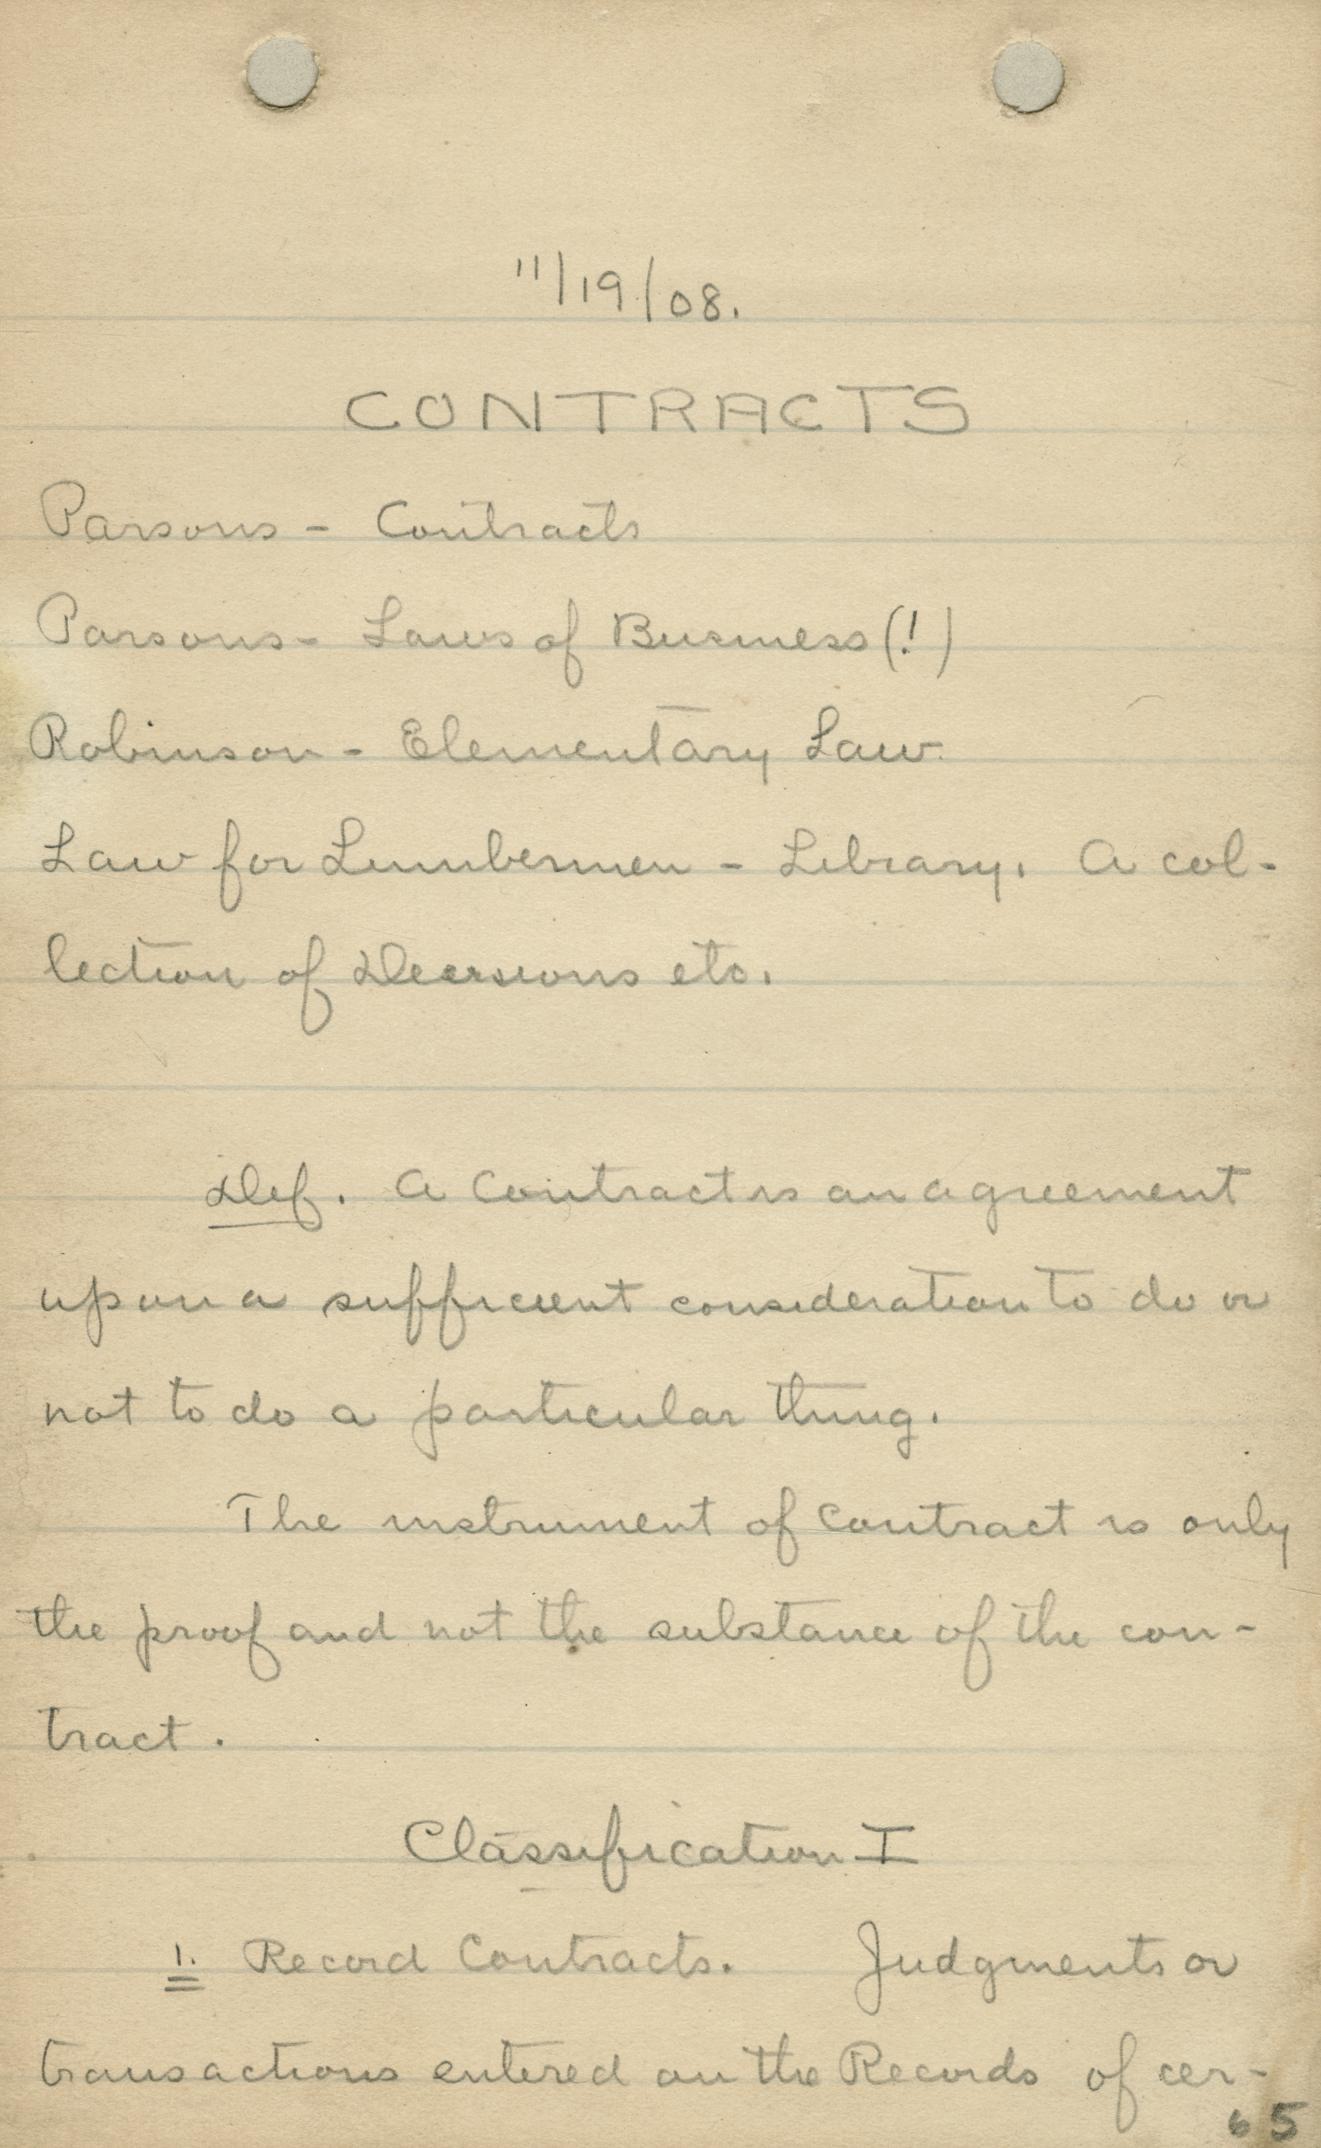 11/19/08.
CONTRACTS
Parsons - Contracts
Parsons - Laws of Business (!)
Robinson - Elementary Law.
Law for Lumbermen - Library. A col-
lection of Decisions etc.
Def. A Contract is an agreement
upon a sufficient consideration to do or
not to do a particular thing.
The instrument of contract is only
the proof and not the substance of the con-
tract.
Classification I
1. Record Contracts. Judgments or
transactions entered on the Records of cer-
65